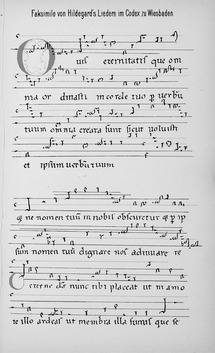 Faksimile von Hildegard's Liedern im Codex zu Wiesbaden.
O uis eternitatis que om
nia or dinasti in corde tuo p uerbu
tuum omnia creata sunt sicut uoluisti
et ipsum uerbu tuum
ne nomen tuu in nobis obscuretur
sum nomen tuu dignare nos adiuuare
eterne ds nunc tibi placeat ut in amo
re illo ardeas ut membra illa simus que